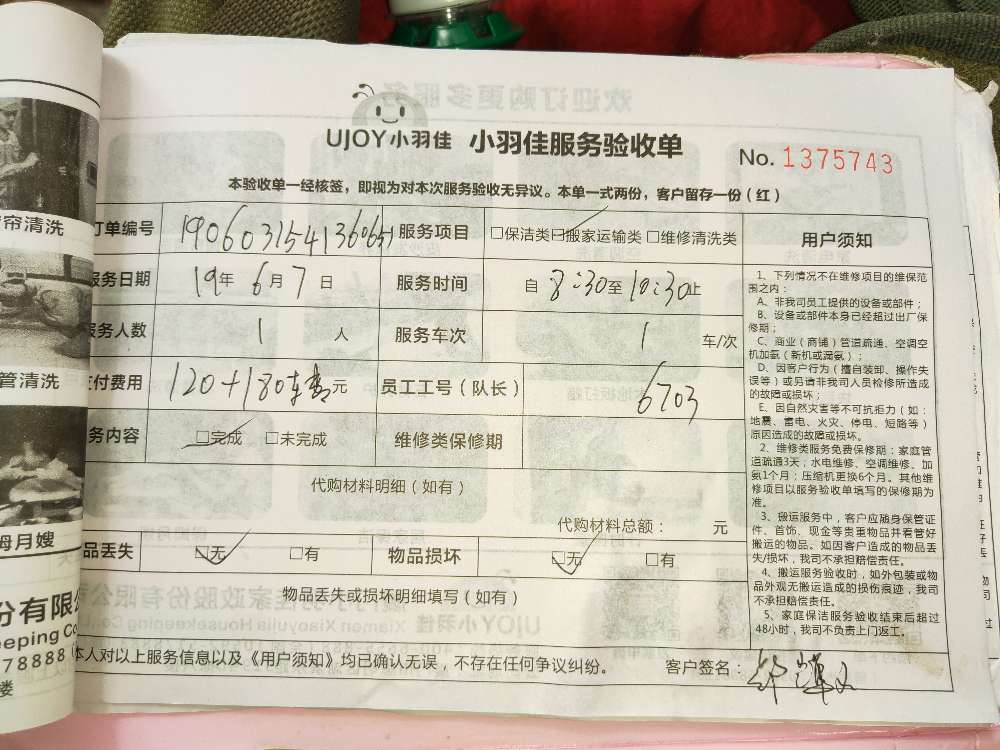 UJOY小羽佳 小羽佳服务验收单
No. 1375743
本验收单一经核签，即视为对本次服务验收无异议。本单一式两份，客户留存一份（红）
订单编号 190603154136065 服务项目 □保洁类 □搬家运输类 □维修清洗类 用户须知
服务日期 19年 6月 7日 服务时间 自 8:30 至 10:30 止
服务人数 1 人 服务车次 1 车/次
支付费用 120+180车费 元 员工工号（队长） 6703
务内容 □完成 □未完成 维修类保修期
代购材料明细（如有）
代购材料总额： 元
品丢失 □无 □有 物品损坏 □无 □有
物品丢失或损坏明细填写（如有）
本人对以上服务信息以及《用户须知》均已确认无误，不存在任何争议纠纷。 客户签名：
1、下列情况不在维修项目的维保范
围之内：
A、非我司员工提供的设备或部件；
B、设备或部件本身已经超过出厂保
修期；
C、商业（商铺）管道疏通、空调空
机加氨（新机或漏氨）；
D、因客户行为（擅自装卸、操作失
误等）或另请非我司人员检修所造成
的故障或损坏；
E、因自然灾害等不可抗拒力（如：
地震、雷电、火灾、停电、短路等）
原因造成的故障或损坏。
2、维修类服务免费保修期：家庭管
道疏通3天；水电维修、空调维修、加
氨1个月；压缩机更换6个月。其他维
修项目以服务验收单填写的保修期为
准。
3、搬运服务中，客户应随身保管证
件、首饰、现金等贵重物品并看管好
搬运的物品。如因客户造成的物品丢
失/损坏，我司不承担赔偿责任。
4、搬运服务验收时，如外包装或物
品外观无搬运造成的损伤痕迹，我司
不承担赔偿责任。
5、家庭保洁服务验收结束后超过
48小时，我司不负责上门返工。
帘清洗
管清洗
母月嫂
份有限
eeping Co
78888
楼